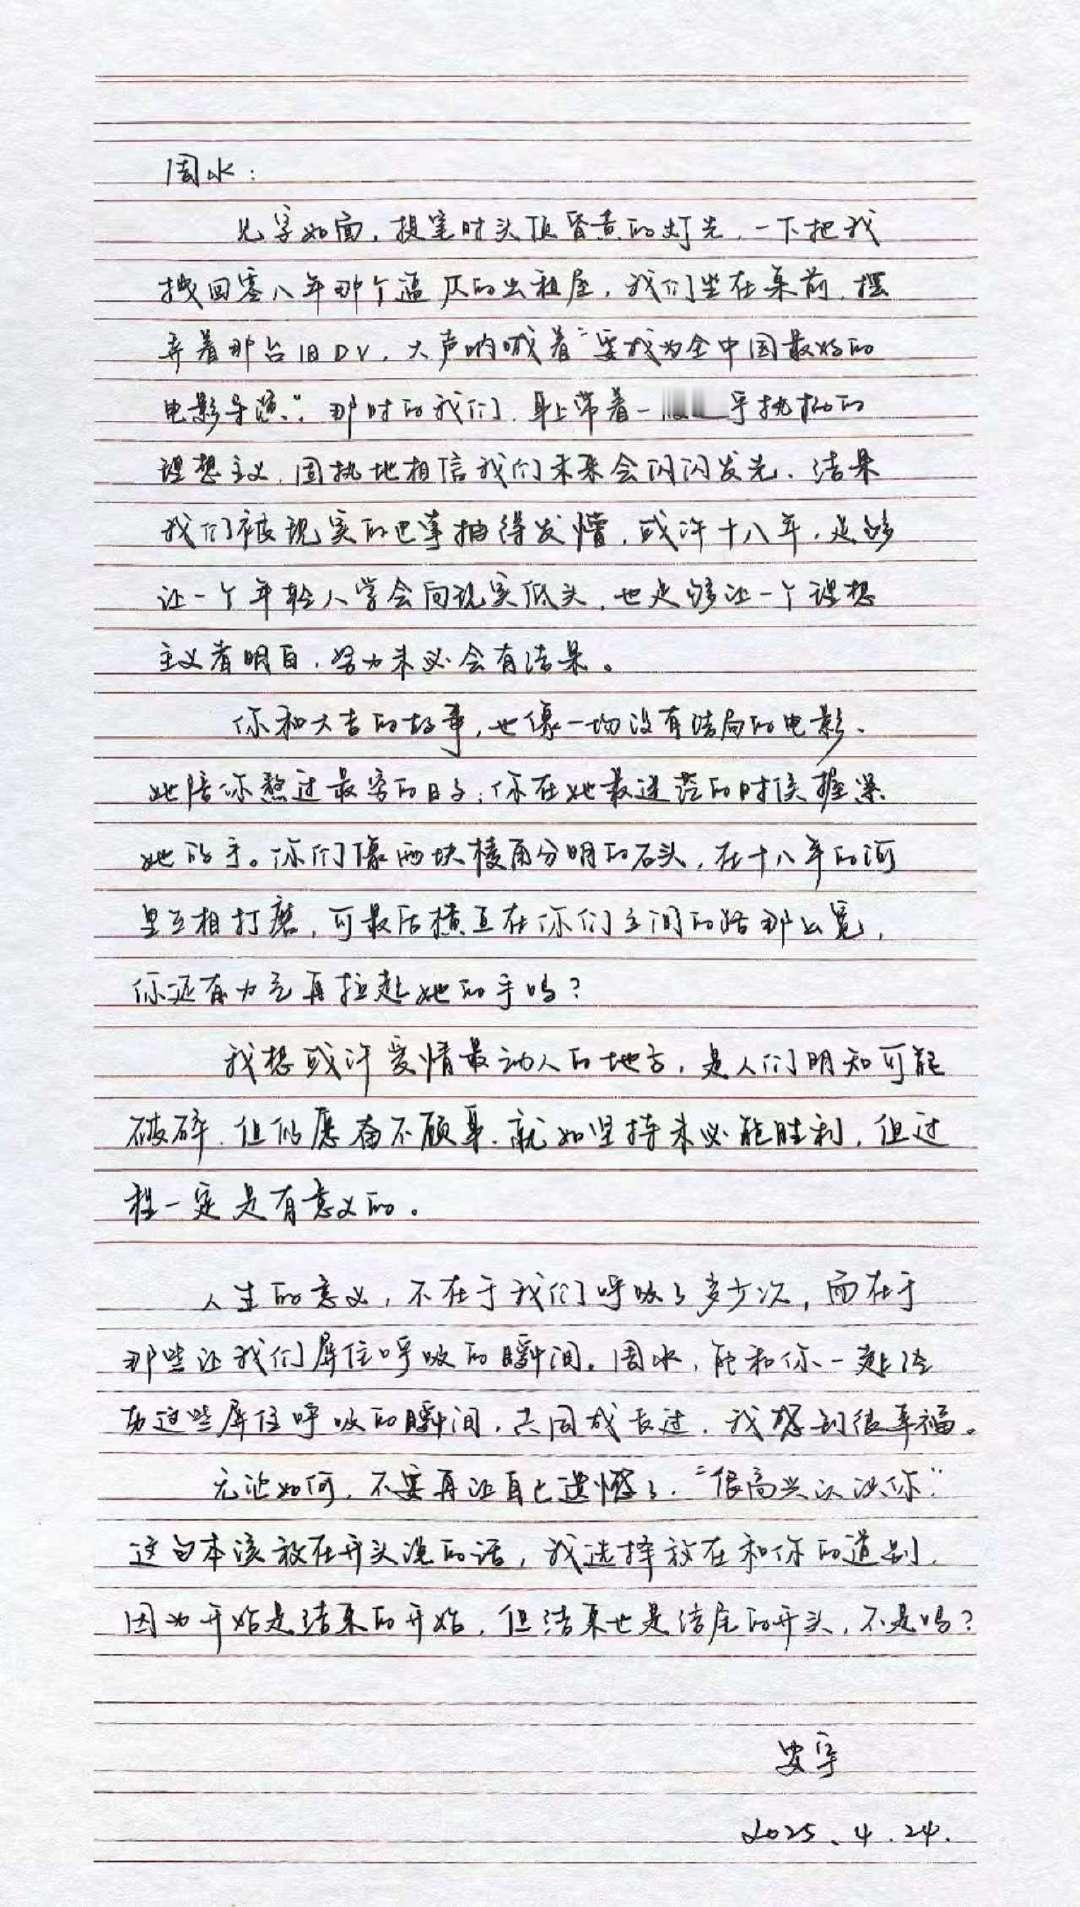 周水：
见字如面，提笔时头顶昏黄的灯光，一下把我
拽回零八年那个逼仄的出租屋，我们坐在桌前，摆
弄着那台旧DV，大声呐喊着“要成为全中国最好的
电影导演”。那时的我们，身上带着一 乎执拗的
理想主义，固执地相信我们未来会闪闪发光，结果
我们被现实的巴掌抽得发懵，或许十八年，足够
让一个年轻人学会向现实低头，也足够让一个理想
主义者明白，努力未必会有结果。
你和大吉的故事，也像一场没有结局的电影，
她陪你熬过最穷的日子；你在她最迷茫的时候握紧
她的手。你们像两块棱角分明的石头，在十八年的河
里互相打磨，可最后横亘在你们之间的路那么宽，
你还有力气再拉起她的手吗？
我想或许爱情最动人的地方，是人们明知可能
破碎，但仍愿奋不顾身，就如坚持未必能胜利，但过
程一定是有意义的。
人生的意义，不在于我们呼吸了多少次，而在于
那些让我们屏住呼吸的瞬间。周水，能和你一起经
历这些屏住呼吸的瞬间，共同成长过，我感到很幸福。
无论如何，不要再让自己遗憾了，“很高兴认识你”
这句本该放在开头说的话，我选择放在和你的道别，
因为开始是结束的开始，但结束也是结尾的开头，不是吗？
安宇
2025.4.24.